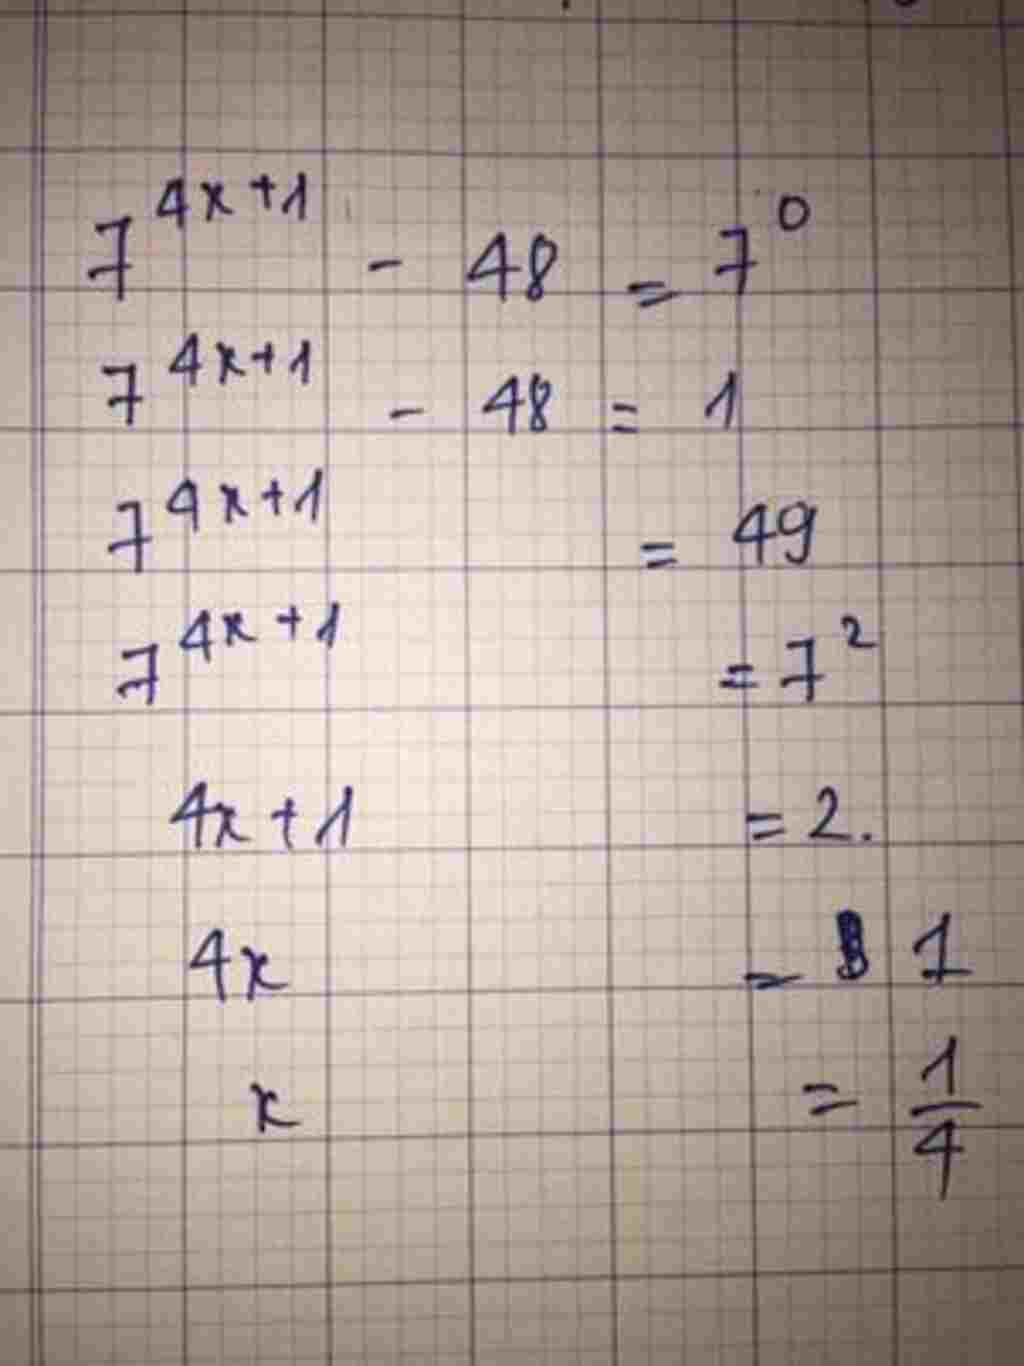 7^{4x+1} - 48 = 7^0
7^{4x+1} - 48 = 1
7^{4x+1} = 49
7^{4x+1} = 7^2
4x+1 = 2.
4x = 1
x = \frac{1}{4}